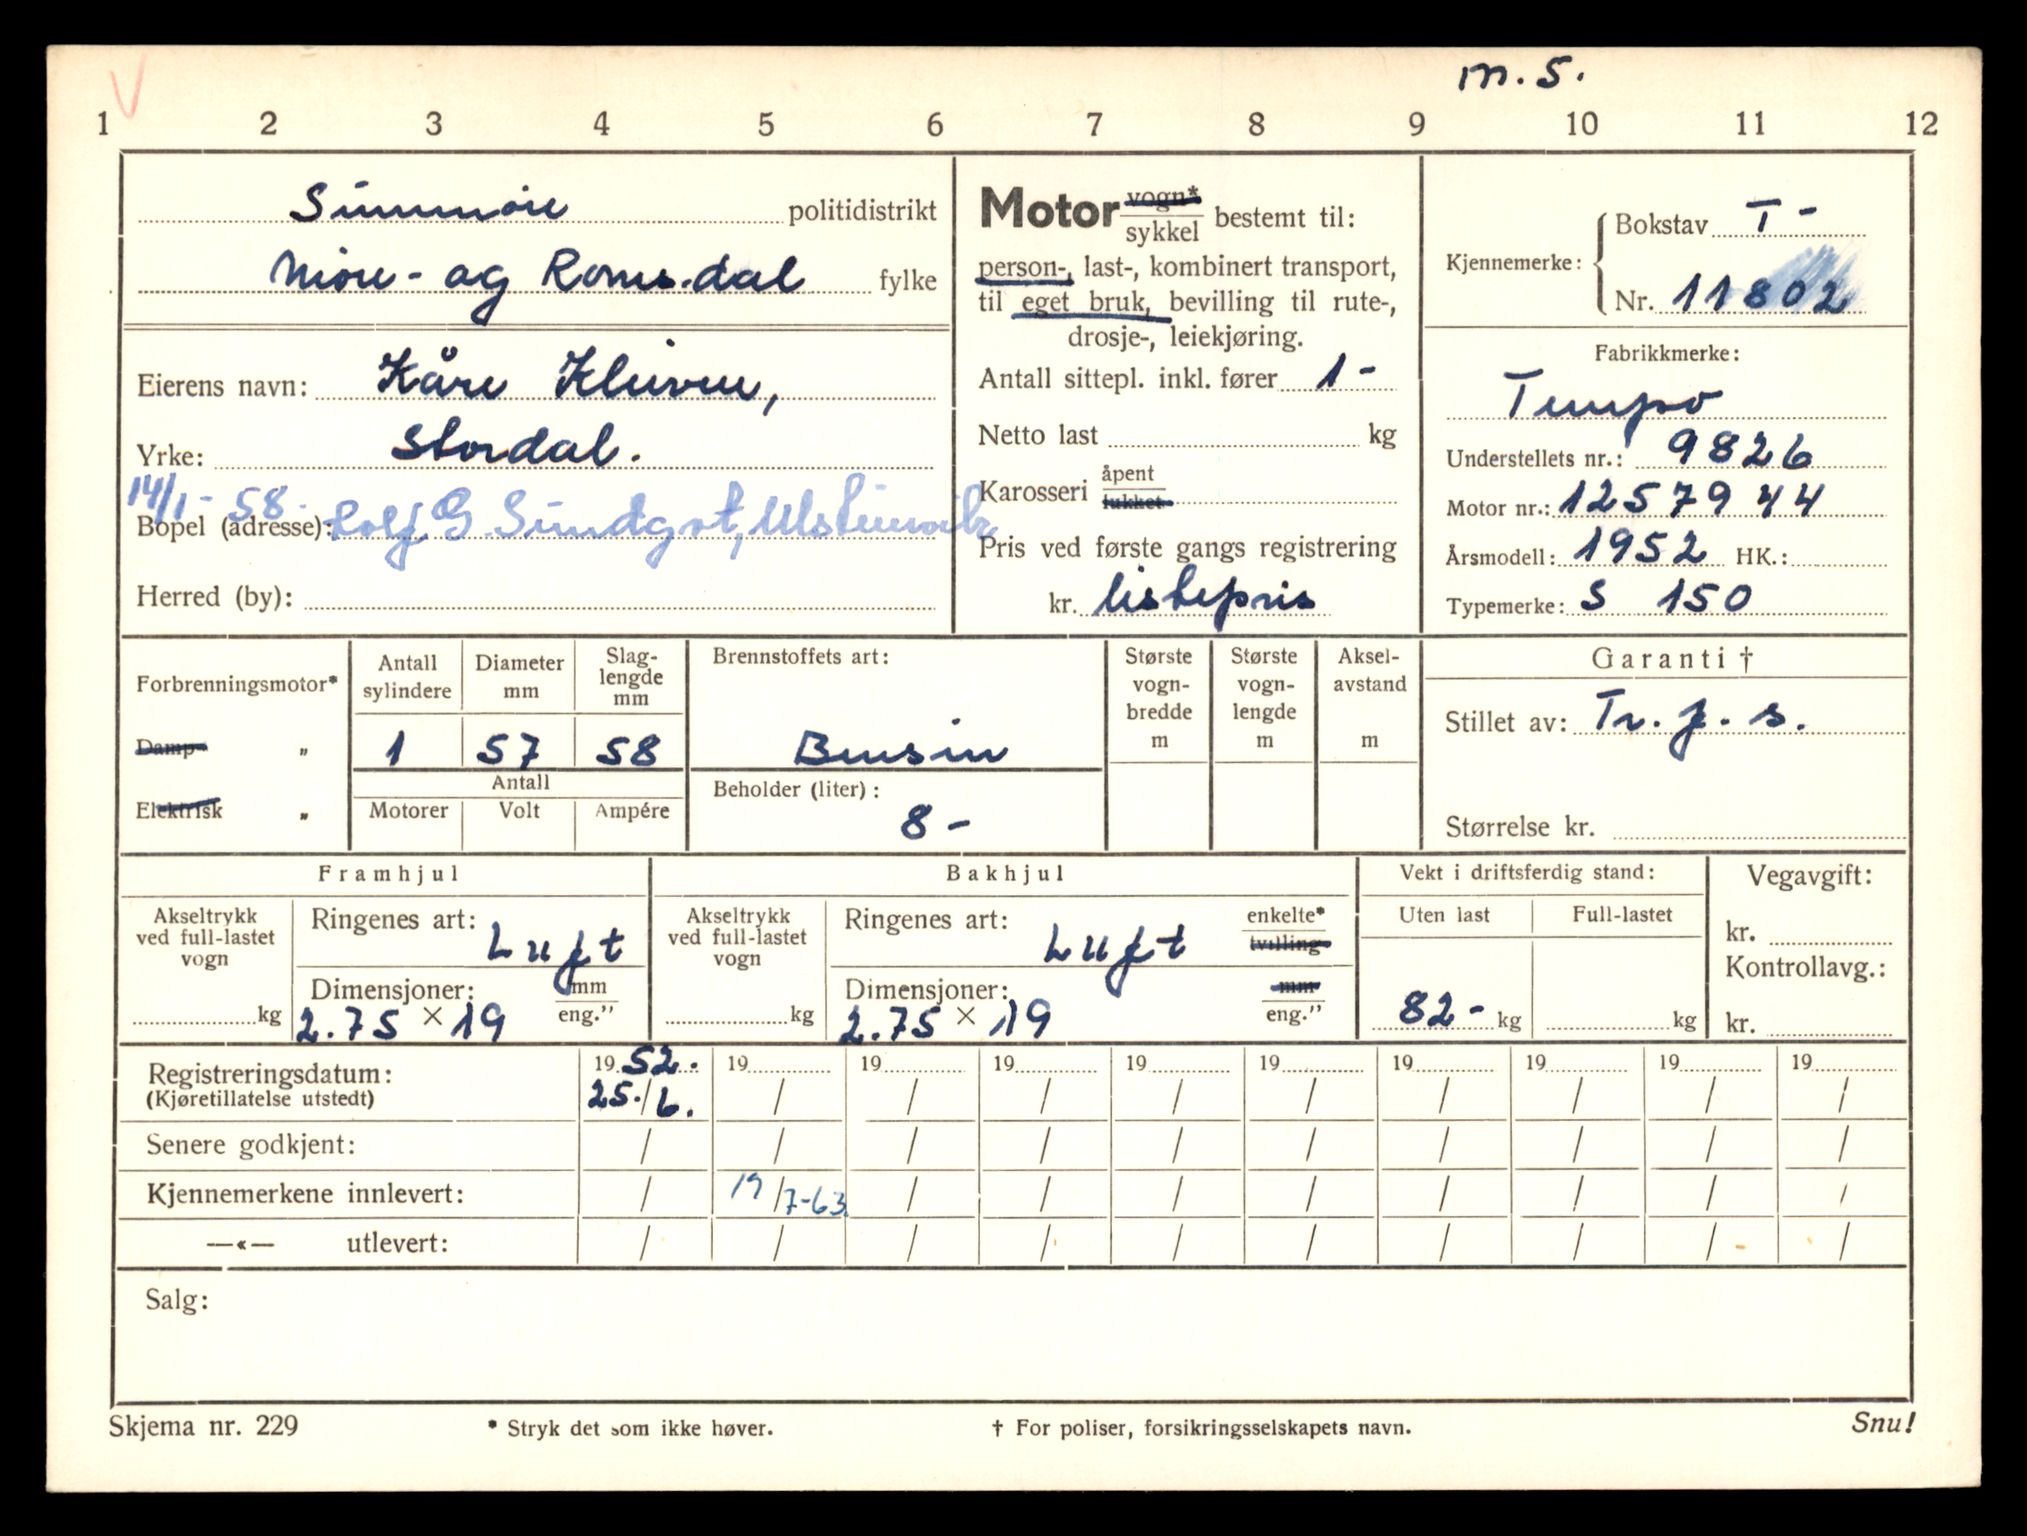 m. s.
1 2 3 4 5 6 7 8 9 10 11 12
Sunnmøre politidistrikt
Møre- og Romsdal fylke
Eierens navn: Kåre Kleiven,
Yrke: Stordal.
14/1-58. Rolf G. Sundgot, Ulsteinvik
Bopel (adresse):
Herred (by):
Motor vogn* / sykkel bestemt til:
person-, last-, kombinert transport,
til eget bruk, bevilling til rute-,
drosje-, leiekjøring.
Antall sittepl. inkl. fører 1 -
Netto last kg
Karosseri åpent / lukket
Pris ved første gangs registrering
kr. listepris
Kjennemerke: Bokstav T -
Nr. 11802
Fabrikkmerke:
Tempo
Understellets nr.: 9826
Motor nr.: 1257944
Årsmodell: 1952 HK.:
Typemerke: S 150
Forbrenningsmotor*
Damp- "
Elektrisk "
Antall sylindere Diameter mm Slag-lengde mm
1 57 58
Antall
Motorer Volt Ampére
Brennstoffets art:
Bensin
Beholder (liter):
8 -
Største vogn-bredde m
Største vogn-lengde m
Aksel-avstand m
Garanti †
Stillet av: Tr. f. s.
Størrelse kr.
Framhjul
Akseltrykk
ved full-lastet
vogn
kg
Ringenes art: Luft
Dimensjoner: mm / eng."
2.75 × 19
Bakhjul
Akseltrykk
ved full-lastet
vogn
kg
Ringenes art: Luft enkelte* / tvilling-
Dimensjoner: mm / eng."
2.75 × 19
Vekt i driftsferdig stand:
Uten last Full-lastet
82 - kg kg
Vegavgift:
kr.
Kontrollavg.:
kr.
Registreringsdatum: 1952. 19 19 19 19 19 19 19 19 19
(Kjøretillatelse utstedt) 25./6. / / / / / / / / /
Senere godkjent: / / / / / / / / / /
Kjennemerkene innlevert: / 19/7-63. / / / / / / / /
—«— utlevert: / / / / / / / / / /
Salg:
Skjema nr. 229 * Stryk det som ikke høver. † For poliser, forsikringsselskapets navn. Snu!